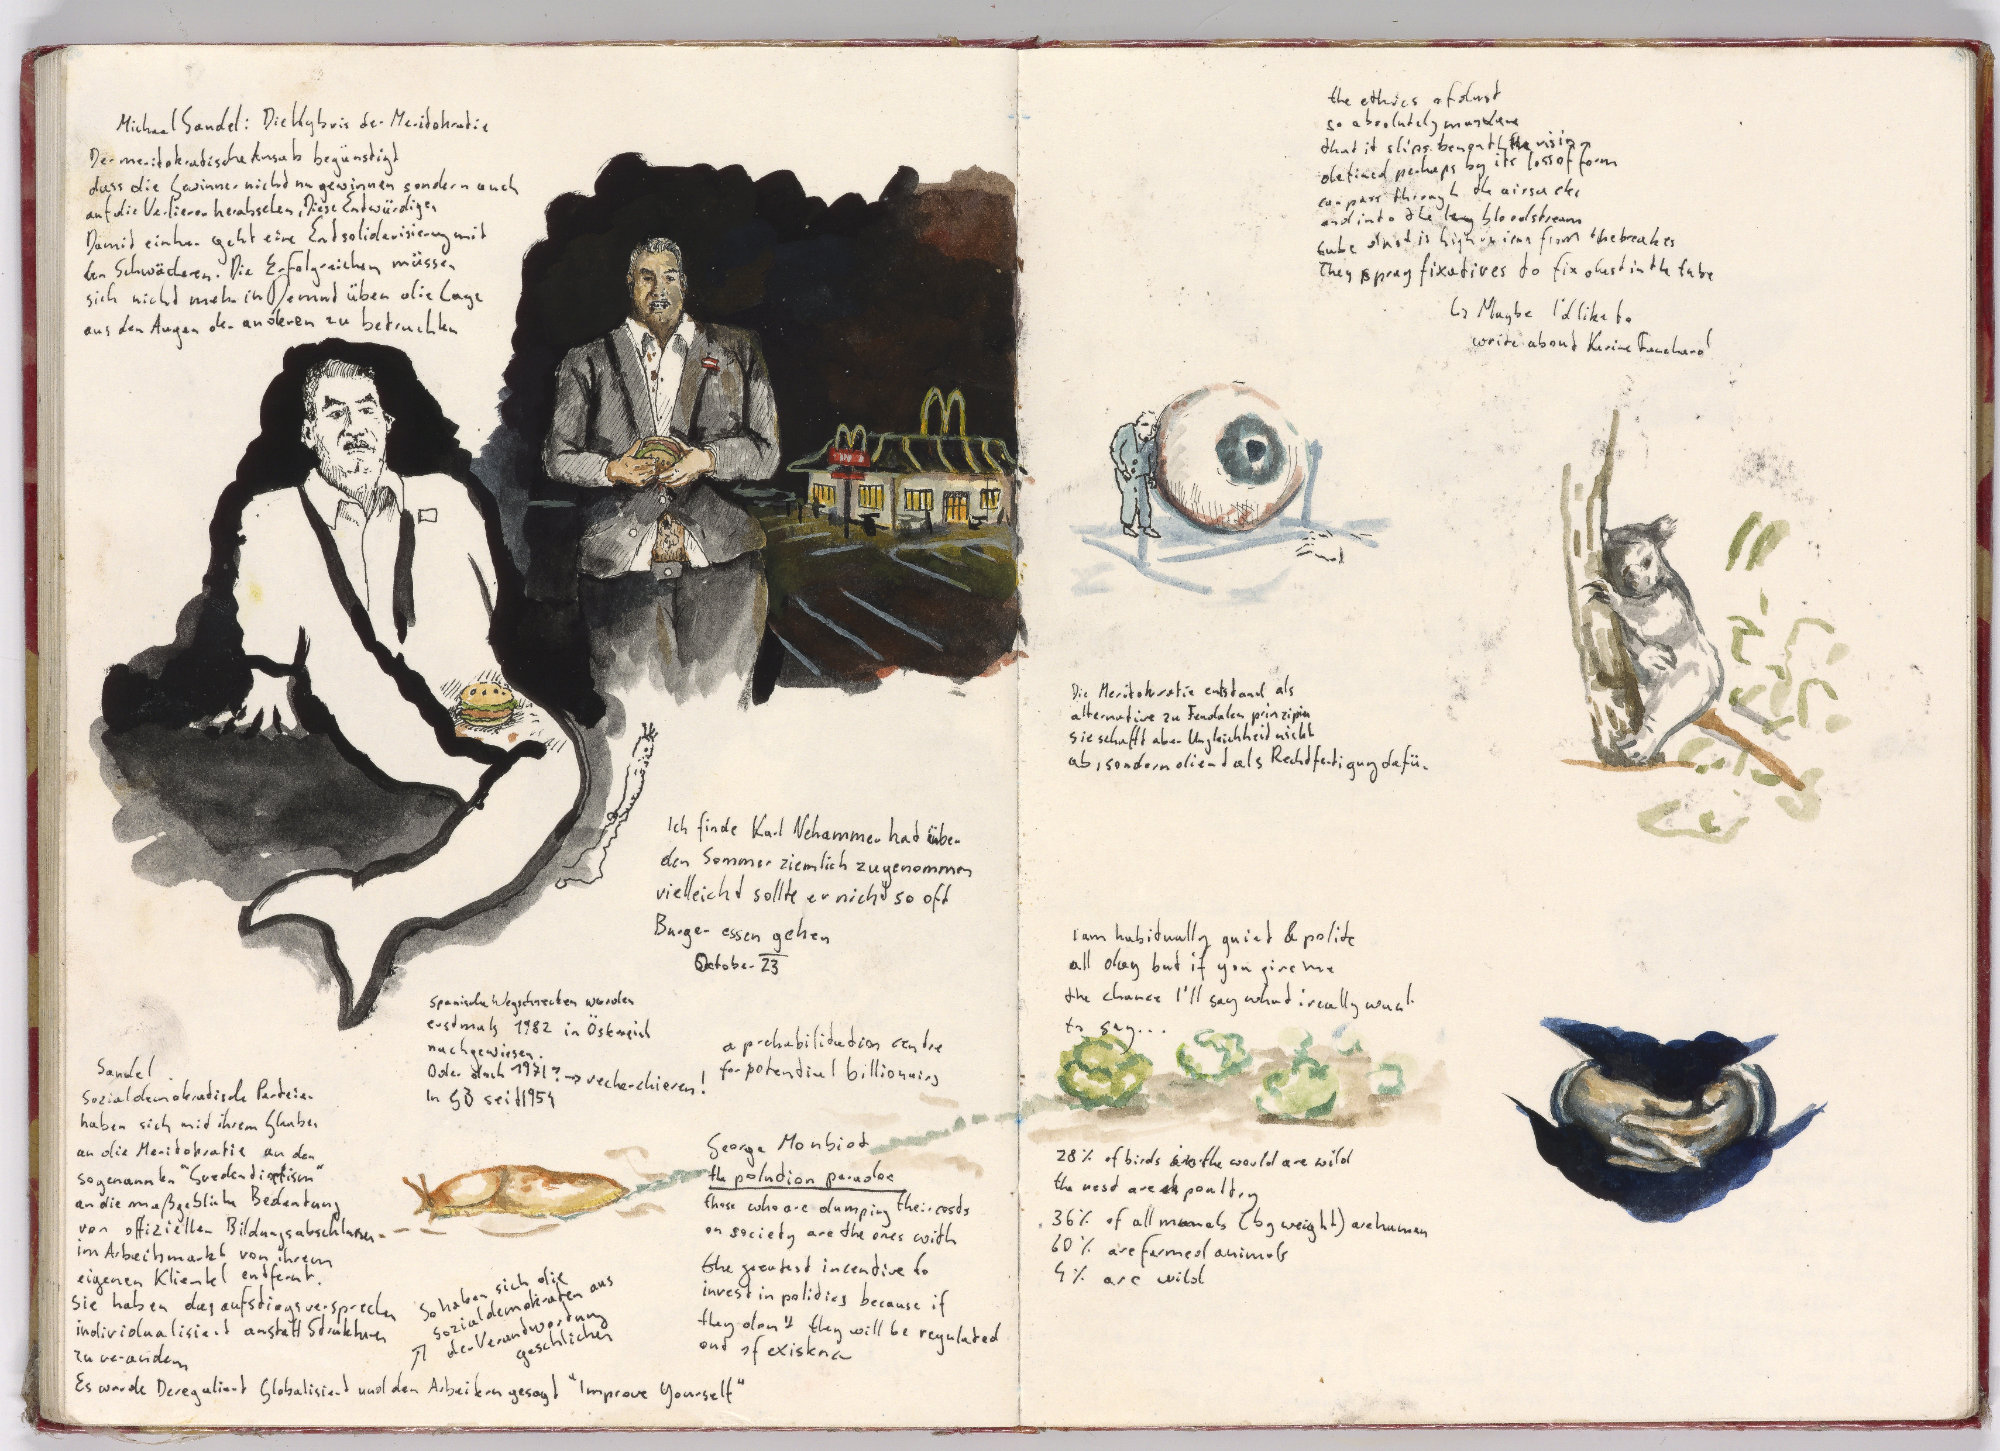 Michael Sandel: Die Hybris der Meritokratie
Der meritokratische Ansatz begünstigt
dass die Gewinner nicht nur gewinnen sondern auch
auf die Verlierer herabsehen, Diese Entwürdigen
Damit einher geht eine Entsolidarisierung mit
den Schwächeren. Die Erfolgreichen müssen
sich nicht mehr in Demut üben die Lage
aus den Augen der anderen zu betrachten
Ich finde Karl Nehammer hat über
den Sommer ziemlich zugenommen
vielleicht sollte er nicht so oft
Burger essen gehen
October 23
Spanische Wegschnecken wurden
erstmals 1982 in Österreich
nachgewiesen.
Oder doch 1971? → recherchieren!
In GB seit 1954
a prehabilitation centre
for potential billionairs
Sandel
Sozialdemokratische Parteien
haben sich mit ihrem Glauben
an die Meritokratie an den
sogenannten "Credentialism"
an die maßgebliche Bedeutung
von offiziellen Bildungsabschlüssen
im Arbeitsmarkt von ihrem
eigenen Klientel entfernt.
Sie haben das aufstiegsversprechen
individualisiert anstatt Strukturen
zu verändern
Es wurde Dereguliert Globalisiert und den Arbeitern gesagt "Improve Yourself"
So haben sich die
sozialdemokraten aus
der Verantwortung
geschlichen
George Monbiot
the polution paradox
those who are dumping their costs
on society are the ones with
the greatest incentive to
invest in politics because if
they don't they will be regulated
out of existence
the ethics of dust
so absolutely
that it slips beneath the vision
defined perhaps by its loss of form
can pass through the airsacks
and into the bloodstream
tube dust is high in iron from the breakes
They spray fixatives to fix dust in the tube
↳ Maybe I'd like to
write about
Die Meritokratie entstand als
alternative zu Feudalen prinzipien
sie schafft aber Ungleichheit nicht
ab, sondern dient als Rechtfertigung dafür
I am habitually quiet & polite
all day but if you give me
the chance I'll say what i really want
to say...
28% of birds in the world are wild
the rest are poultry
36% of all mamals (by weight) are human
60% are farmed animals
4% are wild